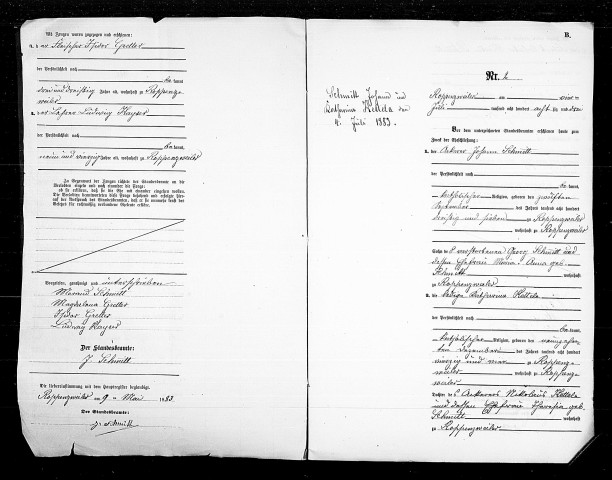 Als Zeugen waren zugezogen und erschienen:
3. der Stepfher Isidor Greller
der Persönlichkeit nach
kannt
drei und dreißig Jahre alt, wohnhaft zu Roppenz-
weiler
4. der Ludwig Kayser
der Persönlichkeit nach
kannt
neun und vierzig Jahre alt, wohnhaft zu Roppenzweiler
In Gegenwart der Zeugen richtete der Standesbeamte an die
Verlobten einzeln und nach einander die Frage:
ob sie erklären, daß sie die Ehe mit einander eingehen wollen.
Die Verlobten beantworteten diese Frage bejahend und erfolgte hier-
auf der Ausspruch des Standesbeamten, daß er sie nunmehr kraft des
Gesetzes für rechtmäßig verbundene Eheleute erkläre.
Vorgelesen, genehmigt und unterschrieben
Schmitt
Magdalena Greller
Isidor Greller
Ludwig Kayser
Der Standesbeamte:
J. Schmitt
Die Uebereinstimmung mit dem Hauptregister beglaubigt.
Roppenzweiler am 9. Mai 1883
Der Standesbeamte:
J. Schmitt
Schmitt Johann und
Katharina Kettela den
4. Juli 1883.
B.
Nr. 2
Roppenzweiler am vier
Juli tausend acht hundert acht und
Vor dem unterzeichneten Standesbeamten erschienen heute zum
Zweck der Eheschließung:
1. der Ackerer Johann Schmitt
der Persönlichkeit nach
kannt
katholischer Religion, geboren den zwölften
des Jahres tausend acht hundert
dreißig und sieben zu Roppenzweiler
wohnhaft zu Roppenzweiler
Sohn des verstorbenen Georg Schmitt und
dessen Ehefrau Maria Anna geb.
Schmitt wohnhaft
zu Roppenzweiler
2. die ledige Katharina Kettela
der Persönlichkeit nach
kannt
katholischer Religion, geboren den neunzehn
ten Dezember des Jahres tausend acht hundert
vierzig und neun zu Roppenz-
weiler wohnhaft zu Roppenz-
weiler
Tochter des Ackerers Nikolaus Kettela
und dessen Ehefrau Theresia geb.
Schmitt wohnhaft
zu Roppenzweiler